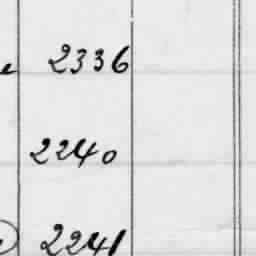 2336
2240
2241